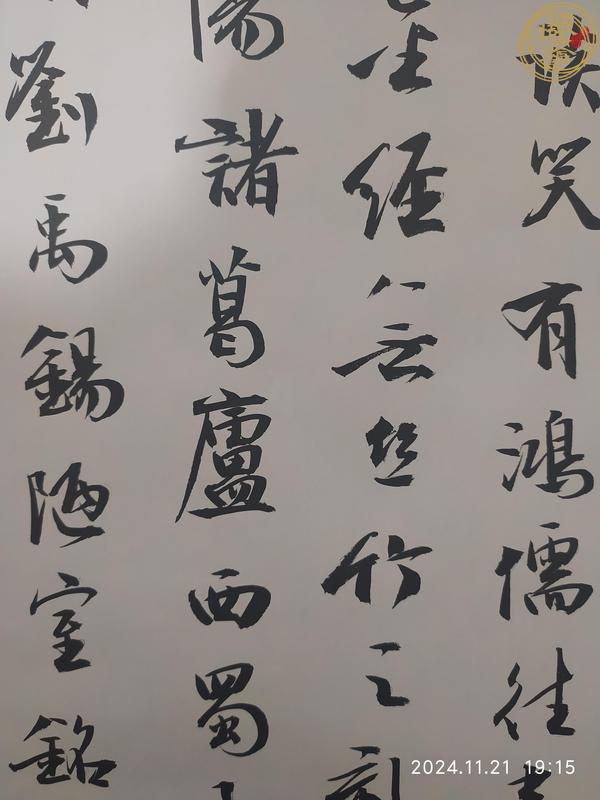 笑有鴻儒往
金經無絲竹之
陽諸葛廬西蜀
劉禹錫陋室銘
2024.11.21 19:15